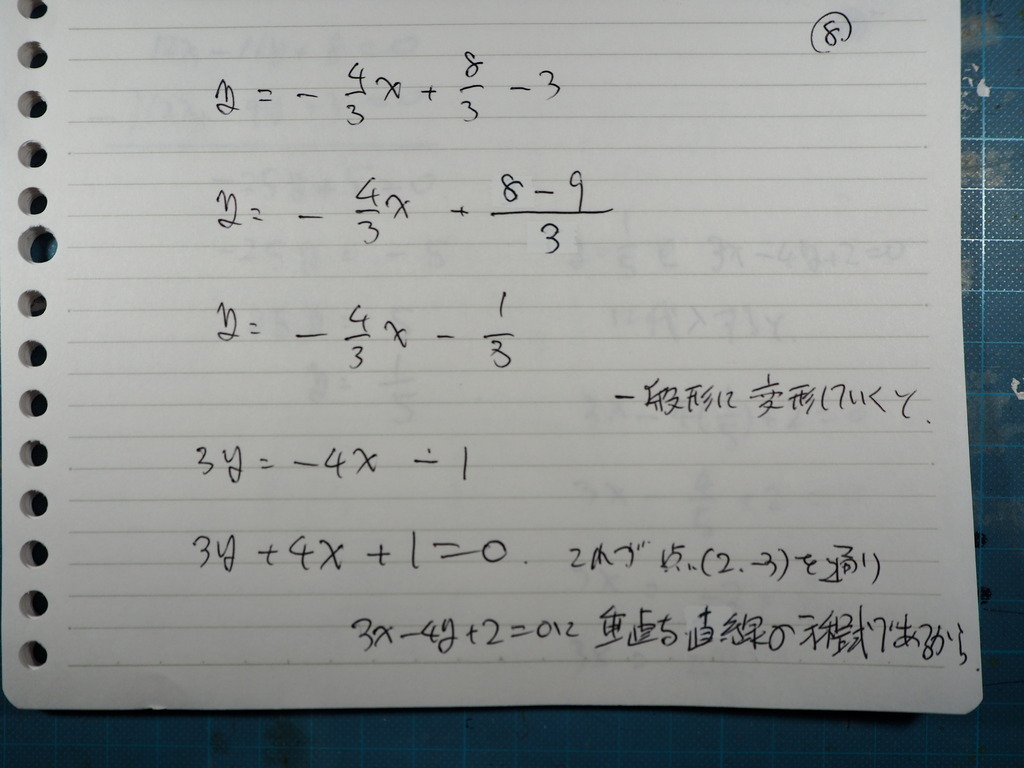 ⑧
y = - 4/3 x + 8/3 - 3
y = - 4/3 x + (8-9)/3
y = - 4/3 x - 1/3
一般形に変形していくと、
3y = -4x - 1
3y + 4x + 1 = 0. これが点(2.-3)を通り
3x-4y+2=0に垂直な直線の方程式であるから